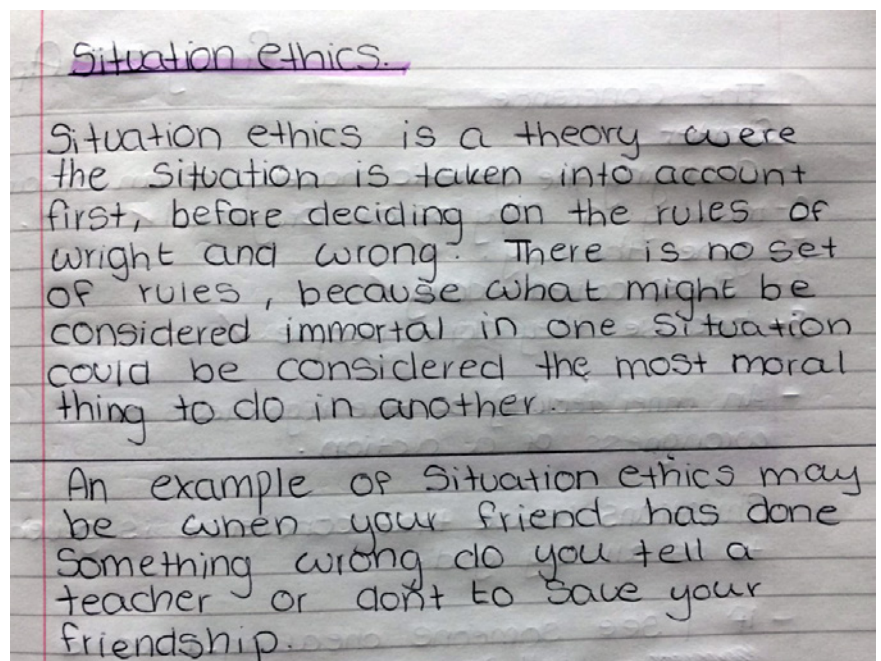 Situation ethics.
Situation ethics is a theory were
the situation is taken into account
first, before deciding on the rules of
wright and wrong. There is no set
of rules, because what might be
considered immortal in one situation
could be considered the most moral
thing to do in another.
An example of situation ethics may
be when your friend has done
something wrong do you tell a
teacher or don't to save your
friendship.